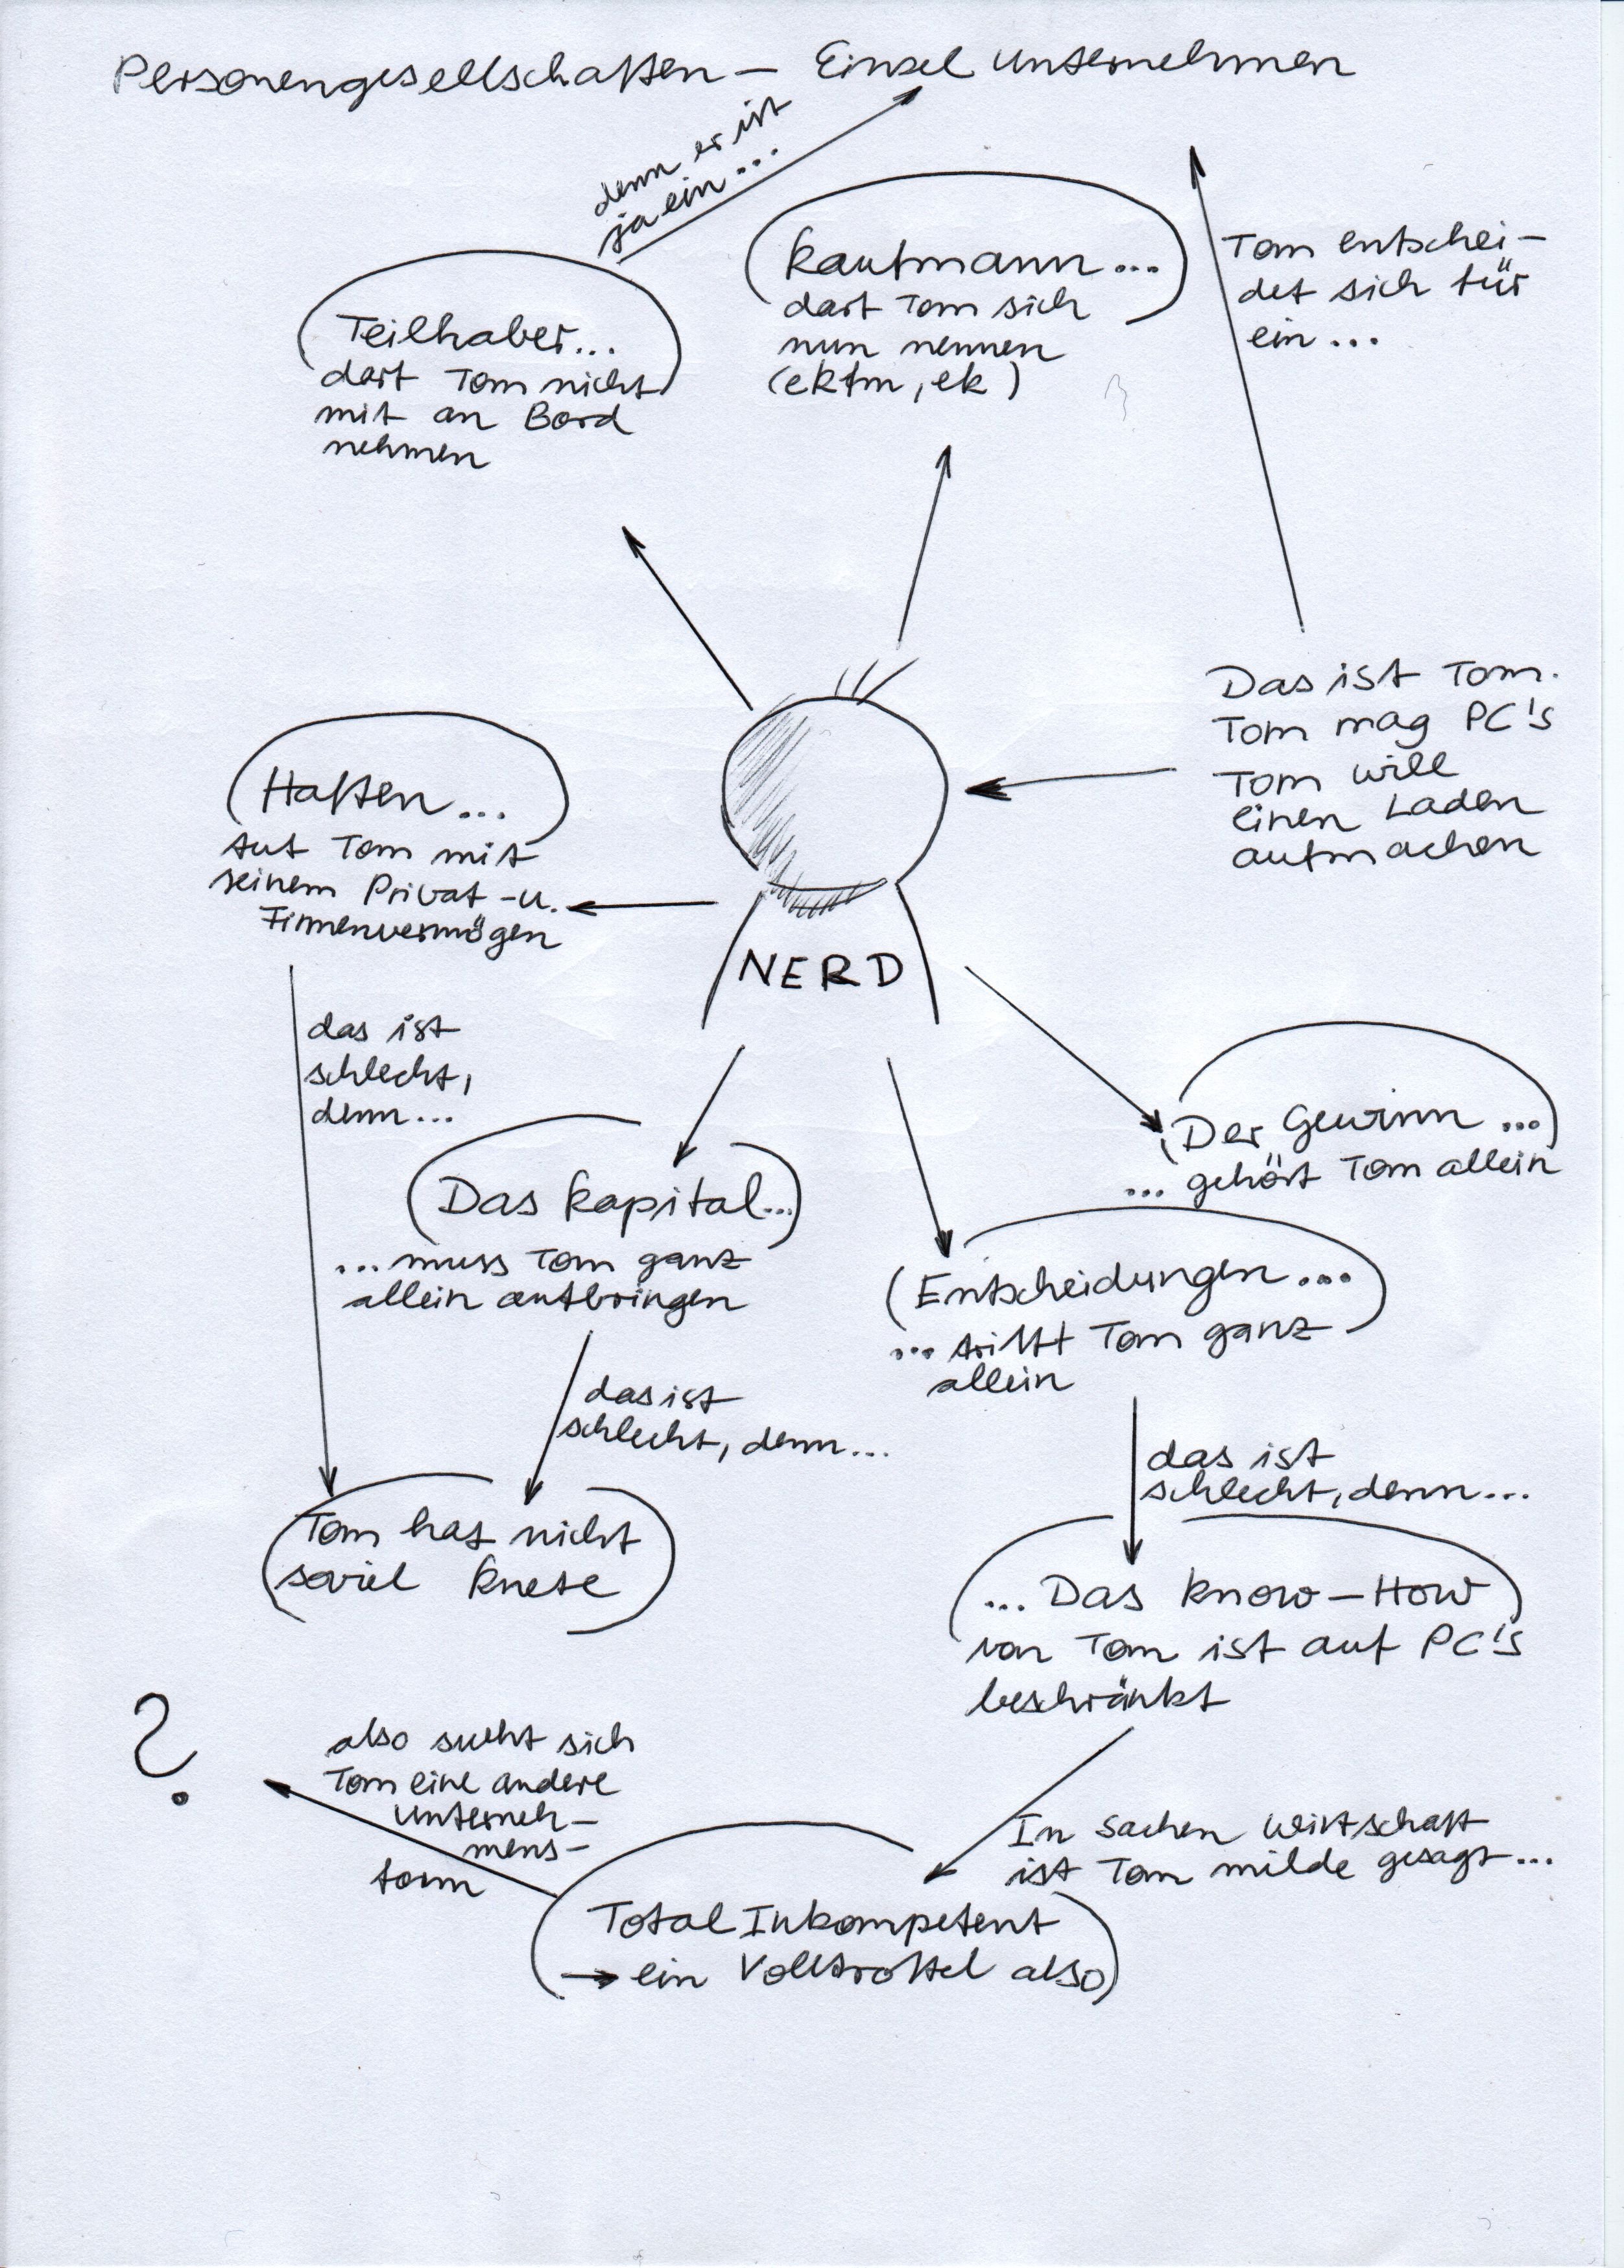 Personengesellschaften – Einzel Unternehmen
denn er ist
ja ein...
Teilhaber...
darf Tom nicht
mit an Bord
nehmen
Kaufmann...
darf Tom sich
nun nennen
(ekfm, ek)
Tom entschei-
det sich für
ein...
Das ist Tom.
Tom mag PC's
Tom will
einen Laden
aufmachen
Haften...
tut Tom mit
seinem Privat-u.
Firmenvermögen
NERD
das ist
schlecht,
denn...
Der Gewinn...
... gehört Tom allein
Das Kapital...
...muss Tom ganz
allein aufbringen
Entscheidungen...
... trifft Tom ganz
allein
das ist
schlecht, denn...
das ist
schlecht, denn...
Tom hat nicht
soviel Knete
... Das Know-How
von Tom ist auf PC's
beschränkt
?
also sucht sich
Tom eine andere
Unterneh-
mens-
form
In Sachen Wirtschaft
ist Tom milde gesagt...
Total Inkompetent
→ ein Volltrottel also